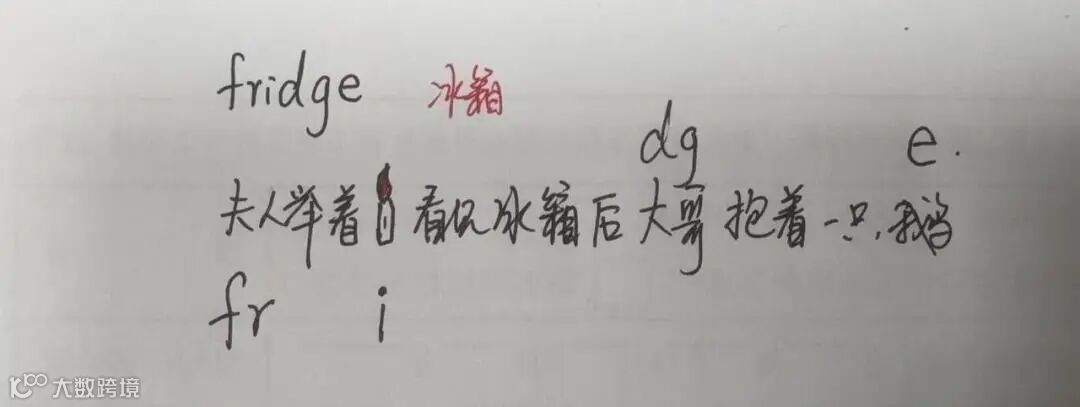 fridge 冰箱
dg e.
夫人举着 看见冰箱后大哥抱着一只鹅
fr i
大数跨境